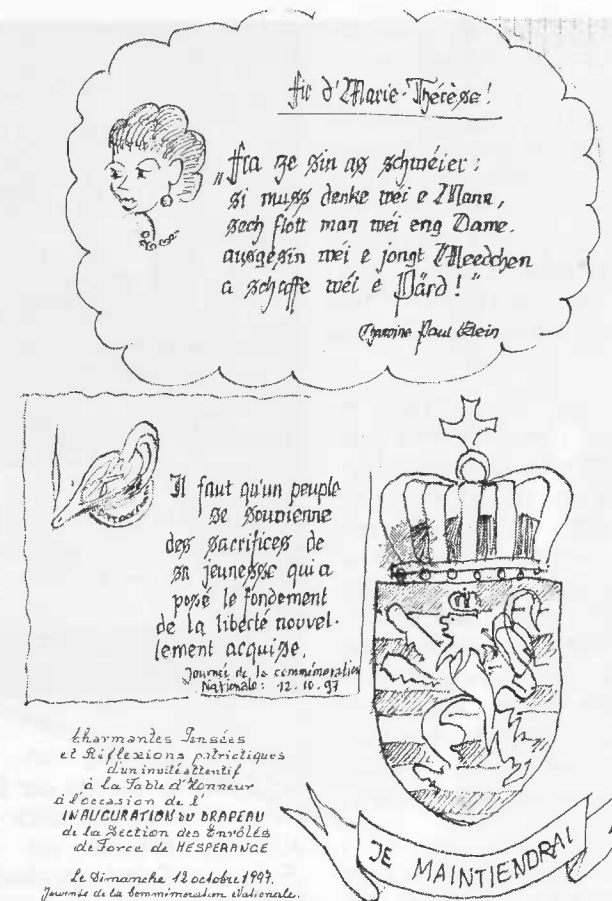 fir d'Marie-Thérèse!
„fra ze sin as schwéier:
si muss denke wéi e Mann,
sech flott man wéi eng Dame.
ausgesin wéi e jongt Meedchen
a schaffe wéi e Pärd!"
Paul Klein
Il faut qu'un peuple
se souvienne
des sacrifices de
sa jeunesse qui a
posé le fondement
de la liberté nouvel-
lement acquise.
Journée de la commémoration
Nationale: 12.10.97
Charmantes Pensées
et Réflexions patriotiques
d'un invité attentif
à la Table d'Honneur
à l'occasion de l'
INAUGURATION DU DRAPEAU
de la Section des Enrôlés
de Force de HESPERANGE
Le Dimanche 12 octobre 1997.
Journée de la Commémoration Nationale.
JE MAINTIENDRAI